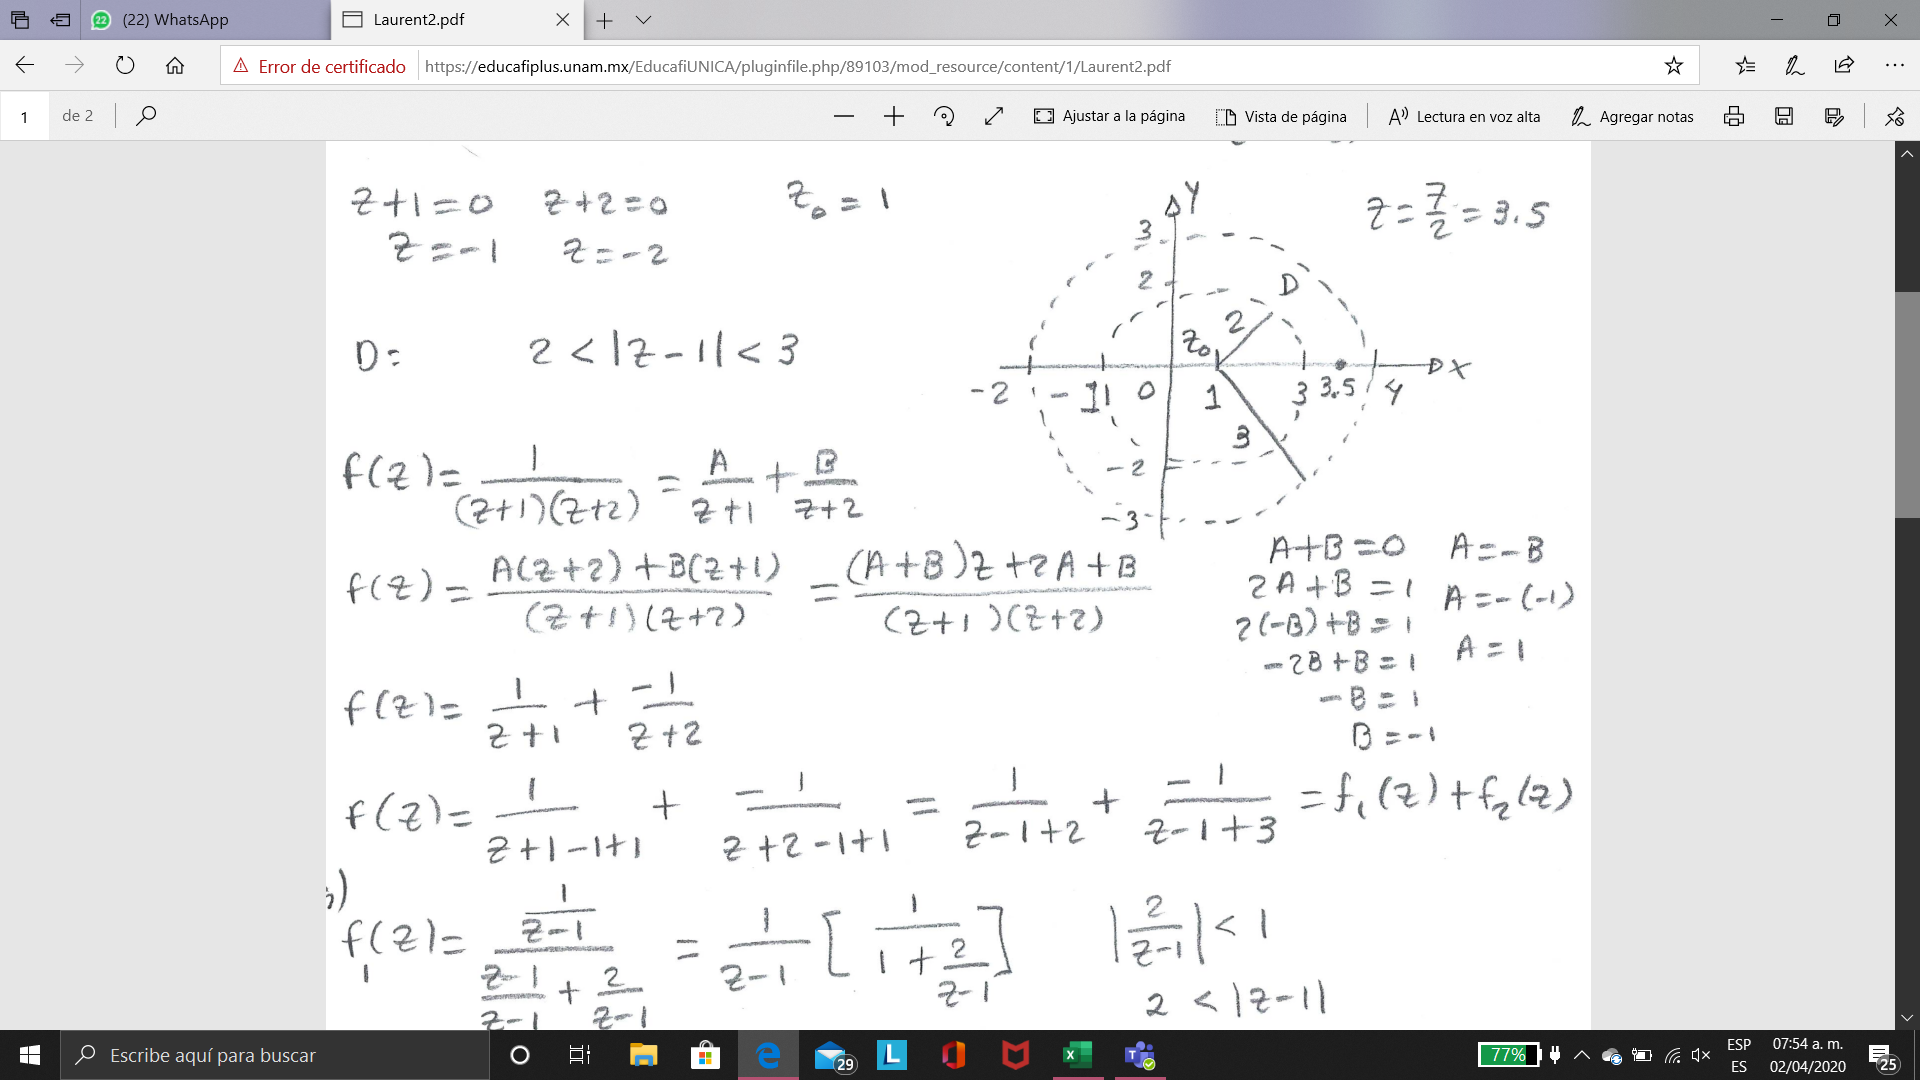 (22) WhatsApp
Laurent2.pdf
Error de certificado
https://educafiplus.unam.mx/EducafiUNICA/pluginfile.php/89103/mod_resource/content/1/Laurent2.pdf
1 de 2
Ajustar a la página
Vista de página
Lectura en voz alta
Agregar notas
z+1=0 z+2=0 z₀=1
z=-1 z=-2
z=7/2=3.5
Y
3
2
D
2
z₀
-2 -1 0 1 3 3.5 4 X
3
-2
-3
D: 2<|z-1|<3
f(z)=1/((z+1)(z+2))=A/(z+1)+B/(z+2)
f(z)=(A(z+2)+B(z+1))/((z+1)(z+2))=((A+B)z+2A+B)/((z+1)(z+2))
A+B=0 A=-B
2A+B=1 A=-(-1)
2(-B)+B=1 A=1
-2B+B=1
-B=1
B=-1
f(z)=1/(z+1)+(-1)/(z+2)
f(z)=1/(z+1-1+1)+(-1)/(z+2-1+1)=1/(z-1+2)+(-1)/(z-1+3)=f₁(z)+f₂(z)
f₁(z)=(1/(z-1))/((z-1)/(z-1)+2/(z-1))=1/(z-1)[1/(1+2/(z-1))] |2/(z-1)|<1
2<|z-1|
Escribe aquí para buscar
29
77%
ESP
ES
07:54 a. m.
02/04/2020
25